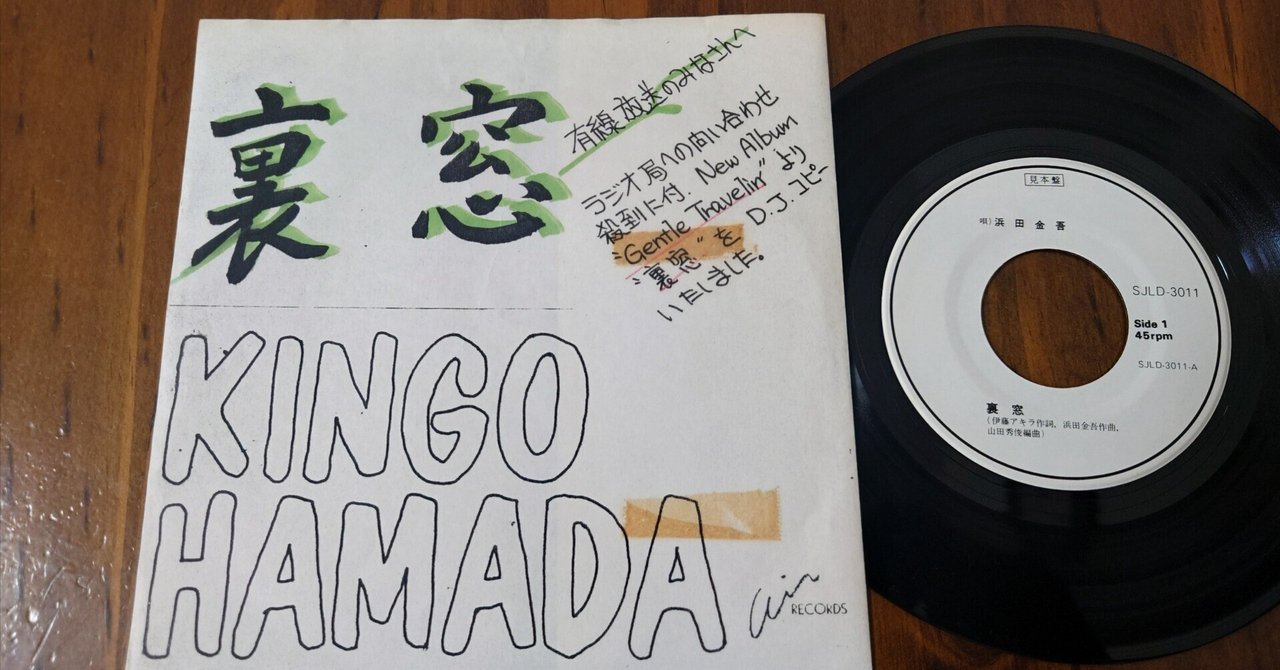 裏窓
有線放送のみなさんへ
ラジオ局への問い合わせ
殺到に付、New Album
"Gentle Travelin'"より
"裏窓"をD.J.コピー
いたしました。
KINGO
HAMADA
Air RECORDS
見本盤
唄)浜田金吾
SJLD-3011
Side 1
45rpm
SJLD-3011-A
裏窓
(伊藤アキラ作詞、浜田金吾作曲、
山田秀俊編曲)